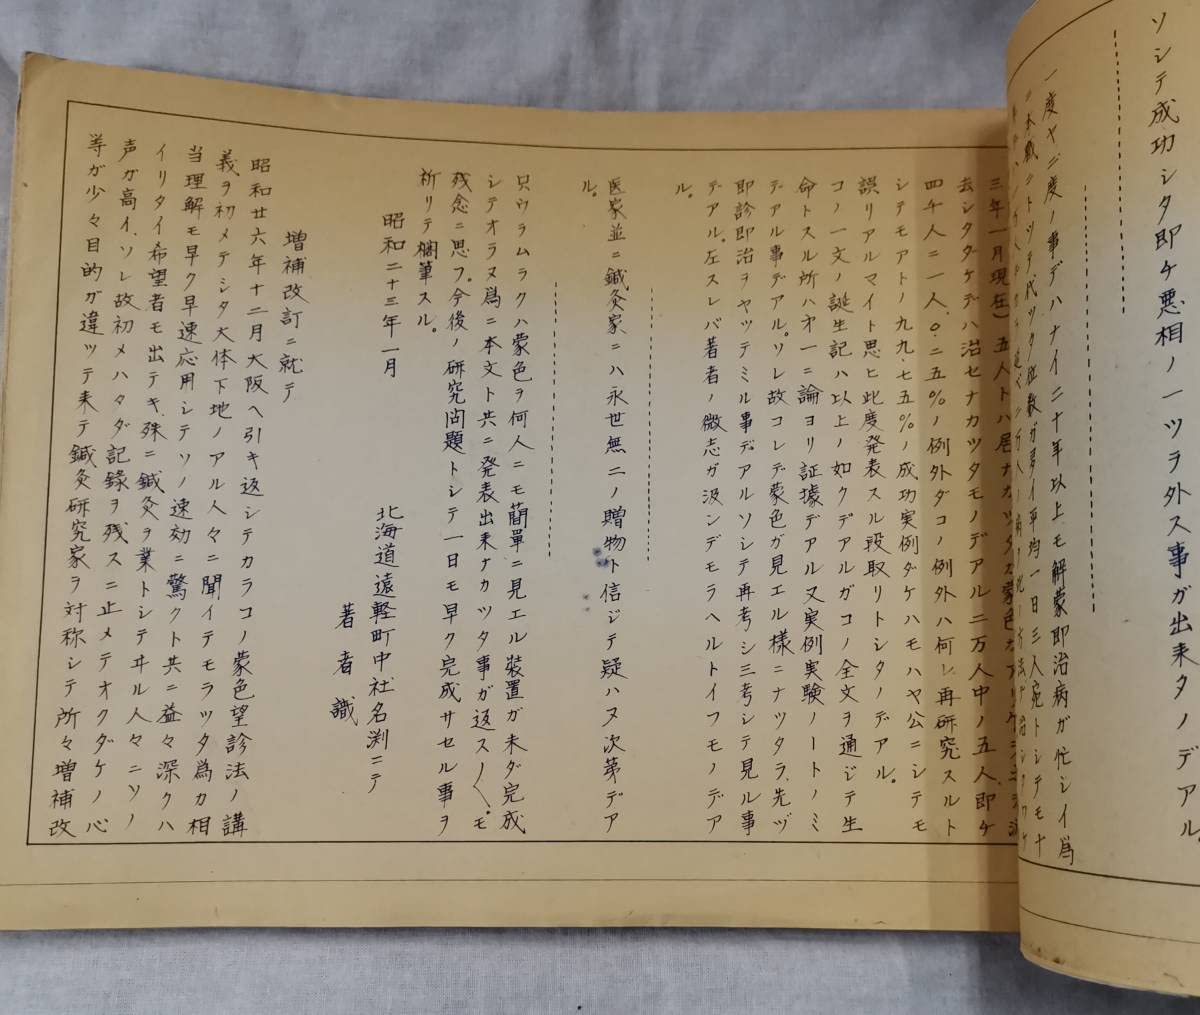 ソシテ成功シタ即ケ悪相ノ一ツラ外ス事ガ出来タノデアル。
一度ヤ二度ノ事デハナイ二十年以上モ解蒙即治病ガ忙シイ爲
三年一月現在)五人トハ居ナカツタ
去シタダケデハ治セナカツタモノデアル二万人中ノ五人即ケ
四千人ニ一人、〇・二五%ノ例外ダコノ例外ハ何レ再研究スルト
シテモアトノ九九・九七五%ノ成功実例ダケハモハヤ公ニシテモ
誤リアルマイト思ヒ此度発表スル段取リトシタノデアル。
コノ一文ノ誕生記ハ以上ノ如クデアルガコノ全文ヲ通ジテ生
命トスル所ハオ一ニ論ヨリ証據デアル又実例実験ノートノミ
デアル事デアル。ソレ故コレデ蒙色ガ見エル様ニナツタラ、先ヅ
即診即治ヲヤツテミル事デアルソシテ再考シ三考シテ見ル事
デアル。左スレバ著者ノ微志ガ汲ンデモラヘルトイフモノデア
ル。
医家並ニ鍼灸家ニハ永世無二ノ贈物ト信ジテ疑ハヌ次第デア
ル。
只ウラムラクハ蒙色ヲ何人ニモ簡單ニ見エル裝置ガ未ダ完成
シテオラヌ爲ニ本文ト共ニ発表出来ナカツタ事ガ返ス〳〵モ
残念ニ思フ。今後ノ研究問題トシテ一日モ早ク完成サセル事ヲ
祈リテ擱筆スル。
昭和二十三年一月
北海道遠軽町中社名渕ニテ
著者識
増補改訂ニ就テ
昭和廿六年十二月大阪ヘ引キ返シテカラコノ蒙色望診法ノ講
義ヲ初メテシタ大体下地ノアル人々ニ聞イテモラツタ爲カ相
当理解モ早ク早速応用シテソノ速効ニ驚クト共ニ益々深クハ
イリタイ希望者モ出テキ、殊ニ鍼灸ヲ業トシテヰル人々ニソノ
声ガ高イ、ソレ故初メハタダ記錄ヲ残スニ止メテオクダケノ心
等ガ少々目的ガ違ツテ来テ鍼灸研究家ヲ対称シテ所々増補改